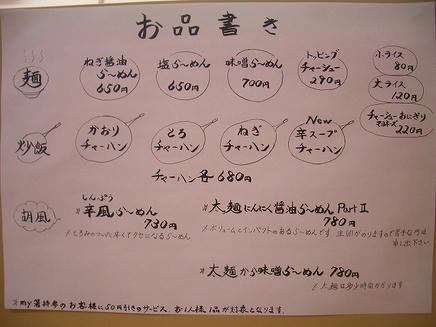 お品書き
麺
ねぎ醤油
らーめん
650円
塩らーめん
650円
味噌らーめん
700円
トッピング
チャーシュー
290円
小ライス
80円
大ライス
120円
チャーシューおにぎり
220円
炒飯
かおり
チャーハン
とろ
チャーハン
ねぎ
チャーハン
New
辛スープ
チャーハン
チャーハン各680円
胡風
しんぷう
*辛風らーめん
730円
*とろみのついた辛くてクセになるらーめん
*太麺にんにく醤油らーめん Part Ⅱ
780円
*ボリュームとインパクトのあるらーめんです。生卵つかりますので苦手な方は
申し出下さい
*太麺から味噌らーめん 780円
*太麺は多少時間かかります
*my箸持参のお客様に50円引きのサービス、お1人様、1品が対象となります。